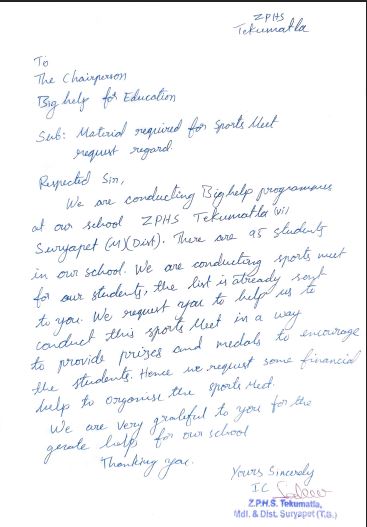 ZPHS
Tekumatla
To
The Chairperson
Big help for Education
Sub: Material required for Sports Meet
request regard.
Respected Sir,
We are conducting Bighelp programmes
at our school ZPHS Tekumatla (vi)
Suryapet (M)(Dist). There are 95 students
in our school. We are conducting sports meet
for our students, the list is already sent
to you. We request you to help us to
conduct this sports Meet in a way
to provide prizes and medals to encourage
the students. Hence we request some financial
help to organise the sports Med.
We are very grateful to you for the
gerate help for our school
Thanking you.
Yours Sincerely
IC
Z.P.H.S. Tekumatla,
Mdl. & Dist. Suryapet (T.S.)